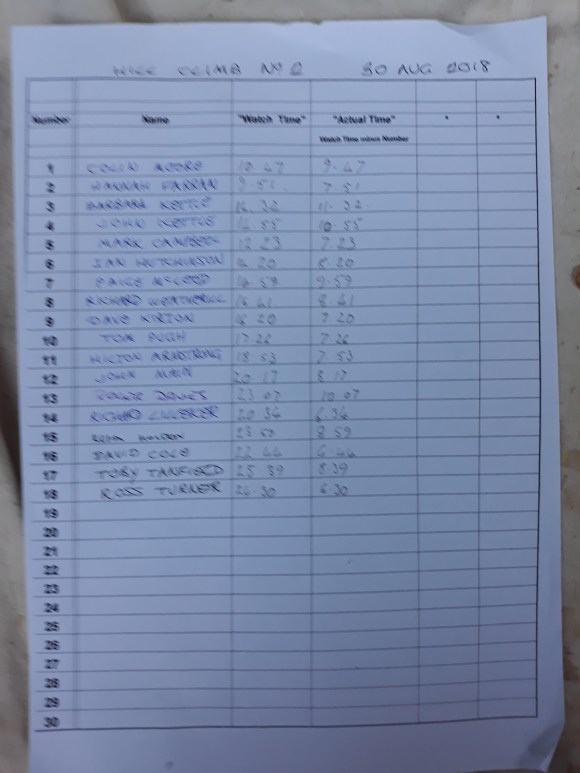 HILL CLIMB Nº 2 30 AUG 2018
Number Name "Watch Time" "Actual Time" * *
Watch Time minus Number
1 COLIN MOORE 10.47 9.47
2 HANNAH FARRAN 9.51 7.51
3 BARBARA KETTLE 14.32 11.32
4 JOHN KETTLE 14.55 10.55
5 MARK CAMPBELL 12.23 7.23
6 IAN HUTCHINSON 14.20 8.20
7 PAIGE McLEOD 16.59 9.59
8 RICHARD WEATHERILL 16.41 8.41
9 DAVE KIRTON 16.20 7.20
10 TOM PUGH 17.26 7.26
11 HILTON ARMSTRONG 18.53 7.53
12 JOHN MAIN 20.17 8.17
13 23.07 10.07
14 RICHARD 20.36 6.36
15 23.59 8.59
16 DAVID COLE 22.44 6.44
17 TOBY TANFIELD 25.39 8.39
18 ROSS TURNER 24.30 6.30
19
20
21
22
23
24
25
26
27
28
29
30